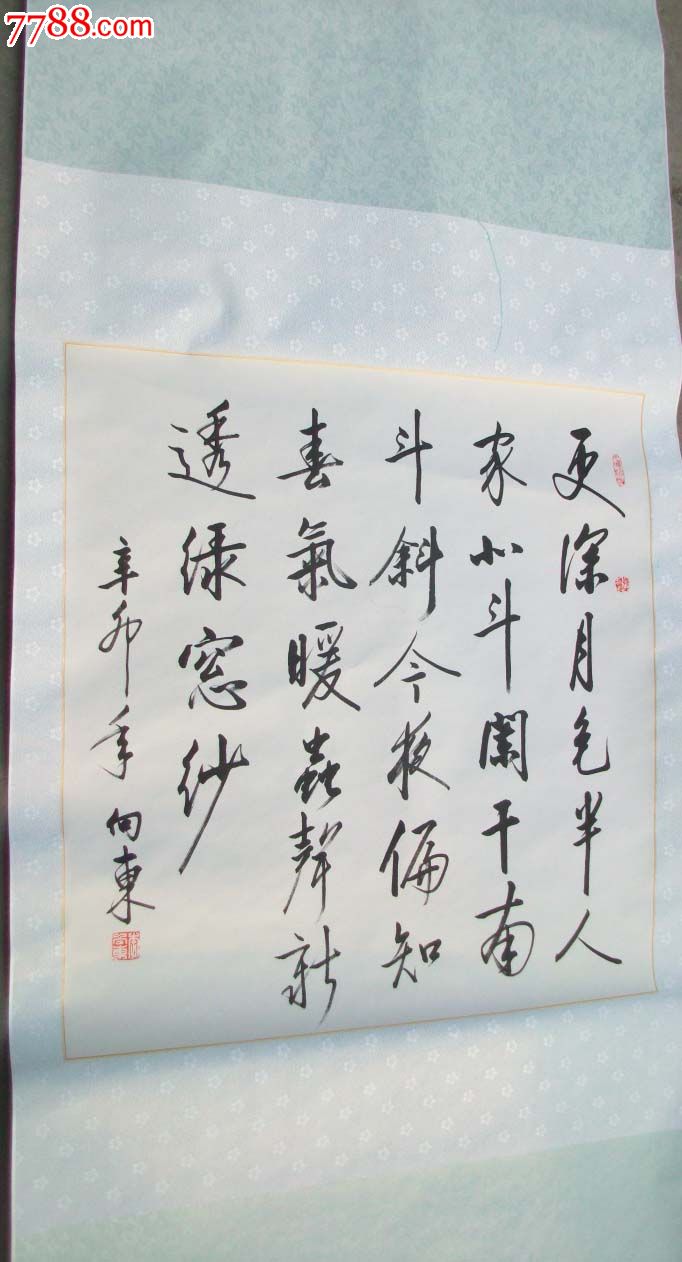 7788.com
更深月色半人
家北斗闌干南
斗斜今夜偏知
春氣暖蟲聲新
透绿窓紗
辛卯年向東